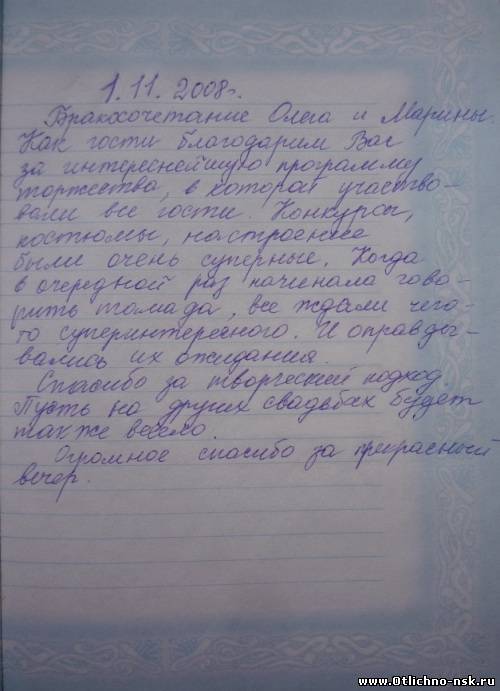 1.11.2008г.
Бракосочетание Олега и Марины.
Как гости благодарим Вас
за интереснейшую программу
торжества, в которой участво-
вали все гости. Конкурсы,
костюмы, настроение
были очень суперные. Когда
в очередной раз начинала гово-
рить тамада, все ждали чего-
то суперинтересного. И оправды-
вались их ожидания.
Спасибо за творческий подход.
Пусть на других свадьбах будет
также весело.
Огромное спасибо за прекрасный
вечер.
www.Otlichno-nsk.ru